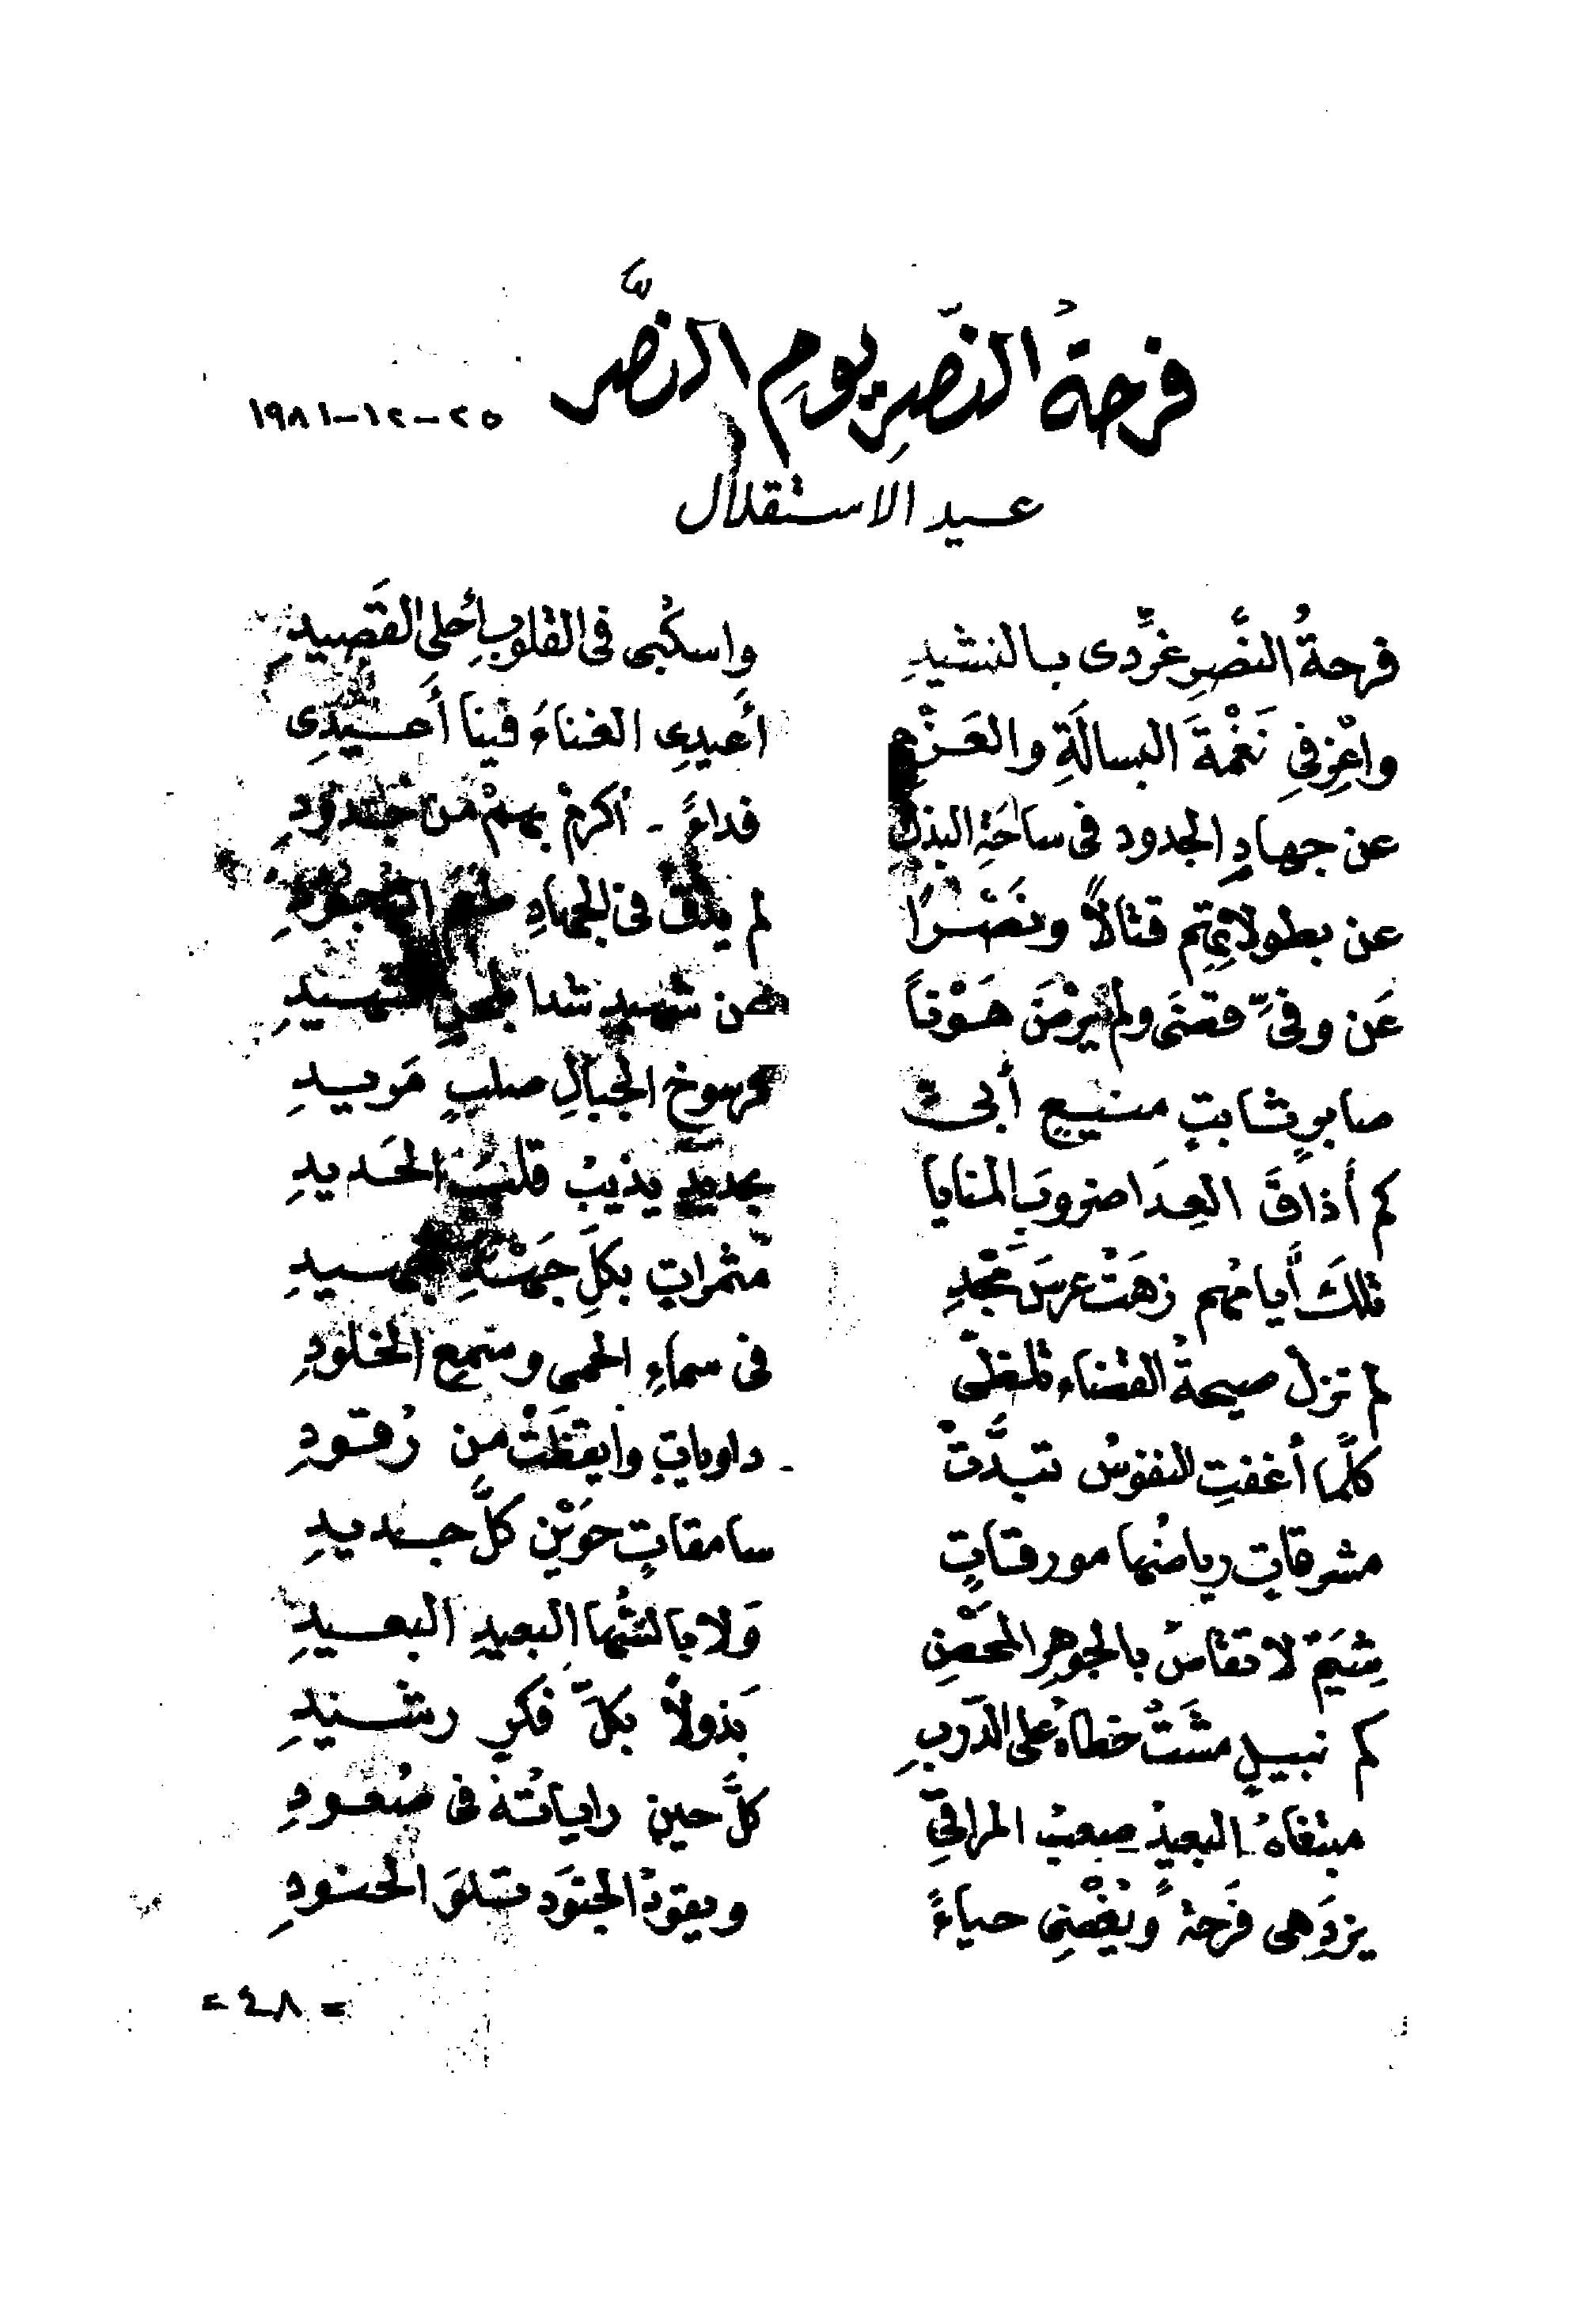 فرحةُ النّصرِ يومِ النصَّر ٢٥-١٢-١٩٨١
عيد الاستقلال
فرحةُ النَّصرِ غرِّدى بالنشيدِ واسكُبى فى القلوبِ أحلى القَصيدِ
واعْزِفِى نَغْمَةَ البسالَةِ والعَزْمِ أَعيدِى الغناءَ فينا أَعيدِى
عن جهادِ الجدود فى ساحَةِ البذل فداءً - أكرمْ بهمْ من جدودِ
عن بطولاتِهِم قتالاً ونَصْراً لم يذق فى الجهادِ طعمَ الهجودِ
عَن وفىٍّ قضَى ولم يَرْضَ هَوْناً عن شهيدٍ شدا بلحنِ الشهيدِ
صابرٍ ثابتٍ منيعٍ أبىٍّ كرسوخِ الجبالِ صلبٍ مَريدِ
كم أَذاقَ العِدَا ضروبَ المنايا بحديدٍ يذيبُ قلبَ الحَديدِ
تلكَ أيامُهم زهَتْ عرسَ مَجْدٍ مثمراتٍ بكلِّ جَهْدٍ جهيدِ
لم تزلْ صيحةُ القضاء تلظّى فى سماءِ الحمى وسَمعِ الخلودِ
كلَّما أغفتِ النفوسُ تبدَّتْ داوياتٍ وأيقظَتْ من رُقودِ
مشرقاتٍ رياضُها مورقاتٍ سامقاتٍ حوَيْنَ كلَّ جديدِ
شِيَمٌ لا تقاسُ بالجوهرِ المحْضِ وَلا بالسُّها البعيدِ البعيدِ
كم نبيلٍ مشَتْ خطاهُ على الدّربِ بَذولاً بكلِّ فكرٍ رشيدِ
مبتغاهُ البعيدُ صعبُ المراقِى كلَّ حينٍ راياتُهُ فى صُعودِ
يزدَهى فَرحةً ويُغْضِى حياءً ويقودُ الجنوَد تِلوَ الجنودِ
- ٤٨ -